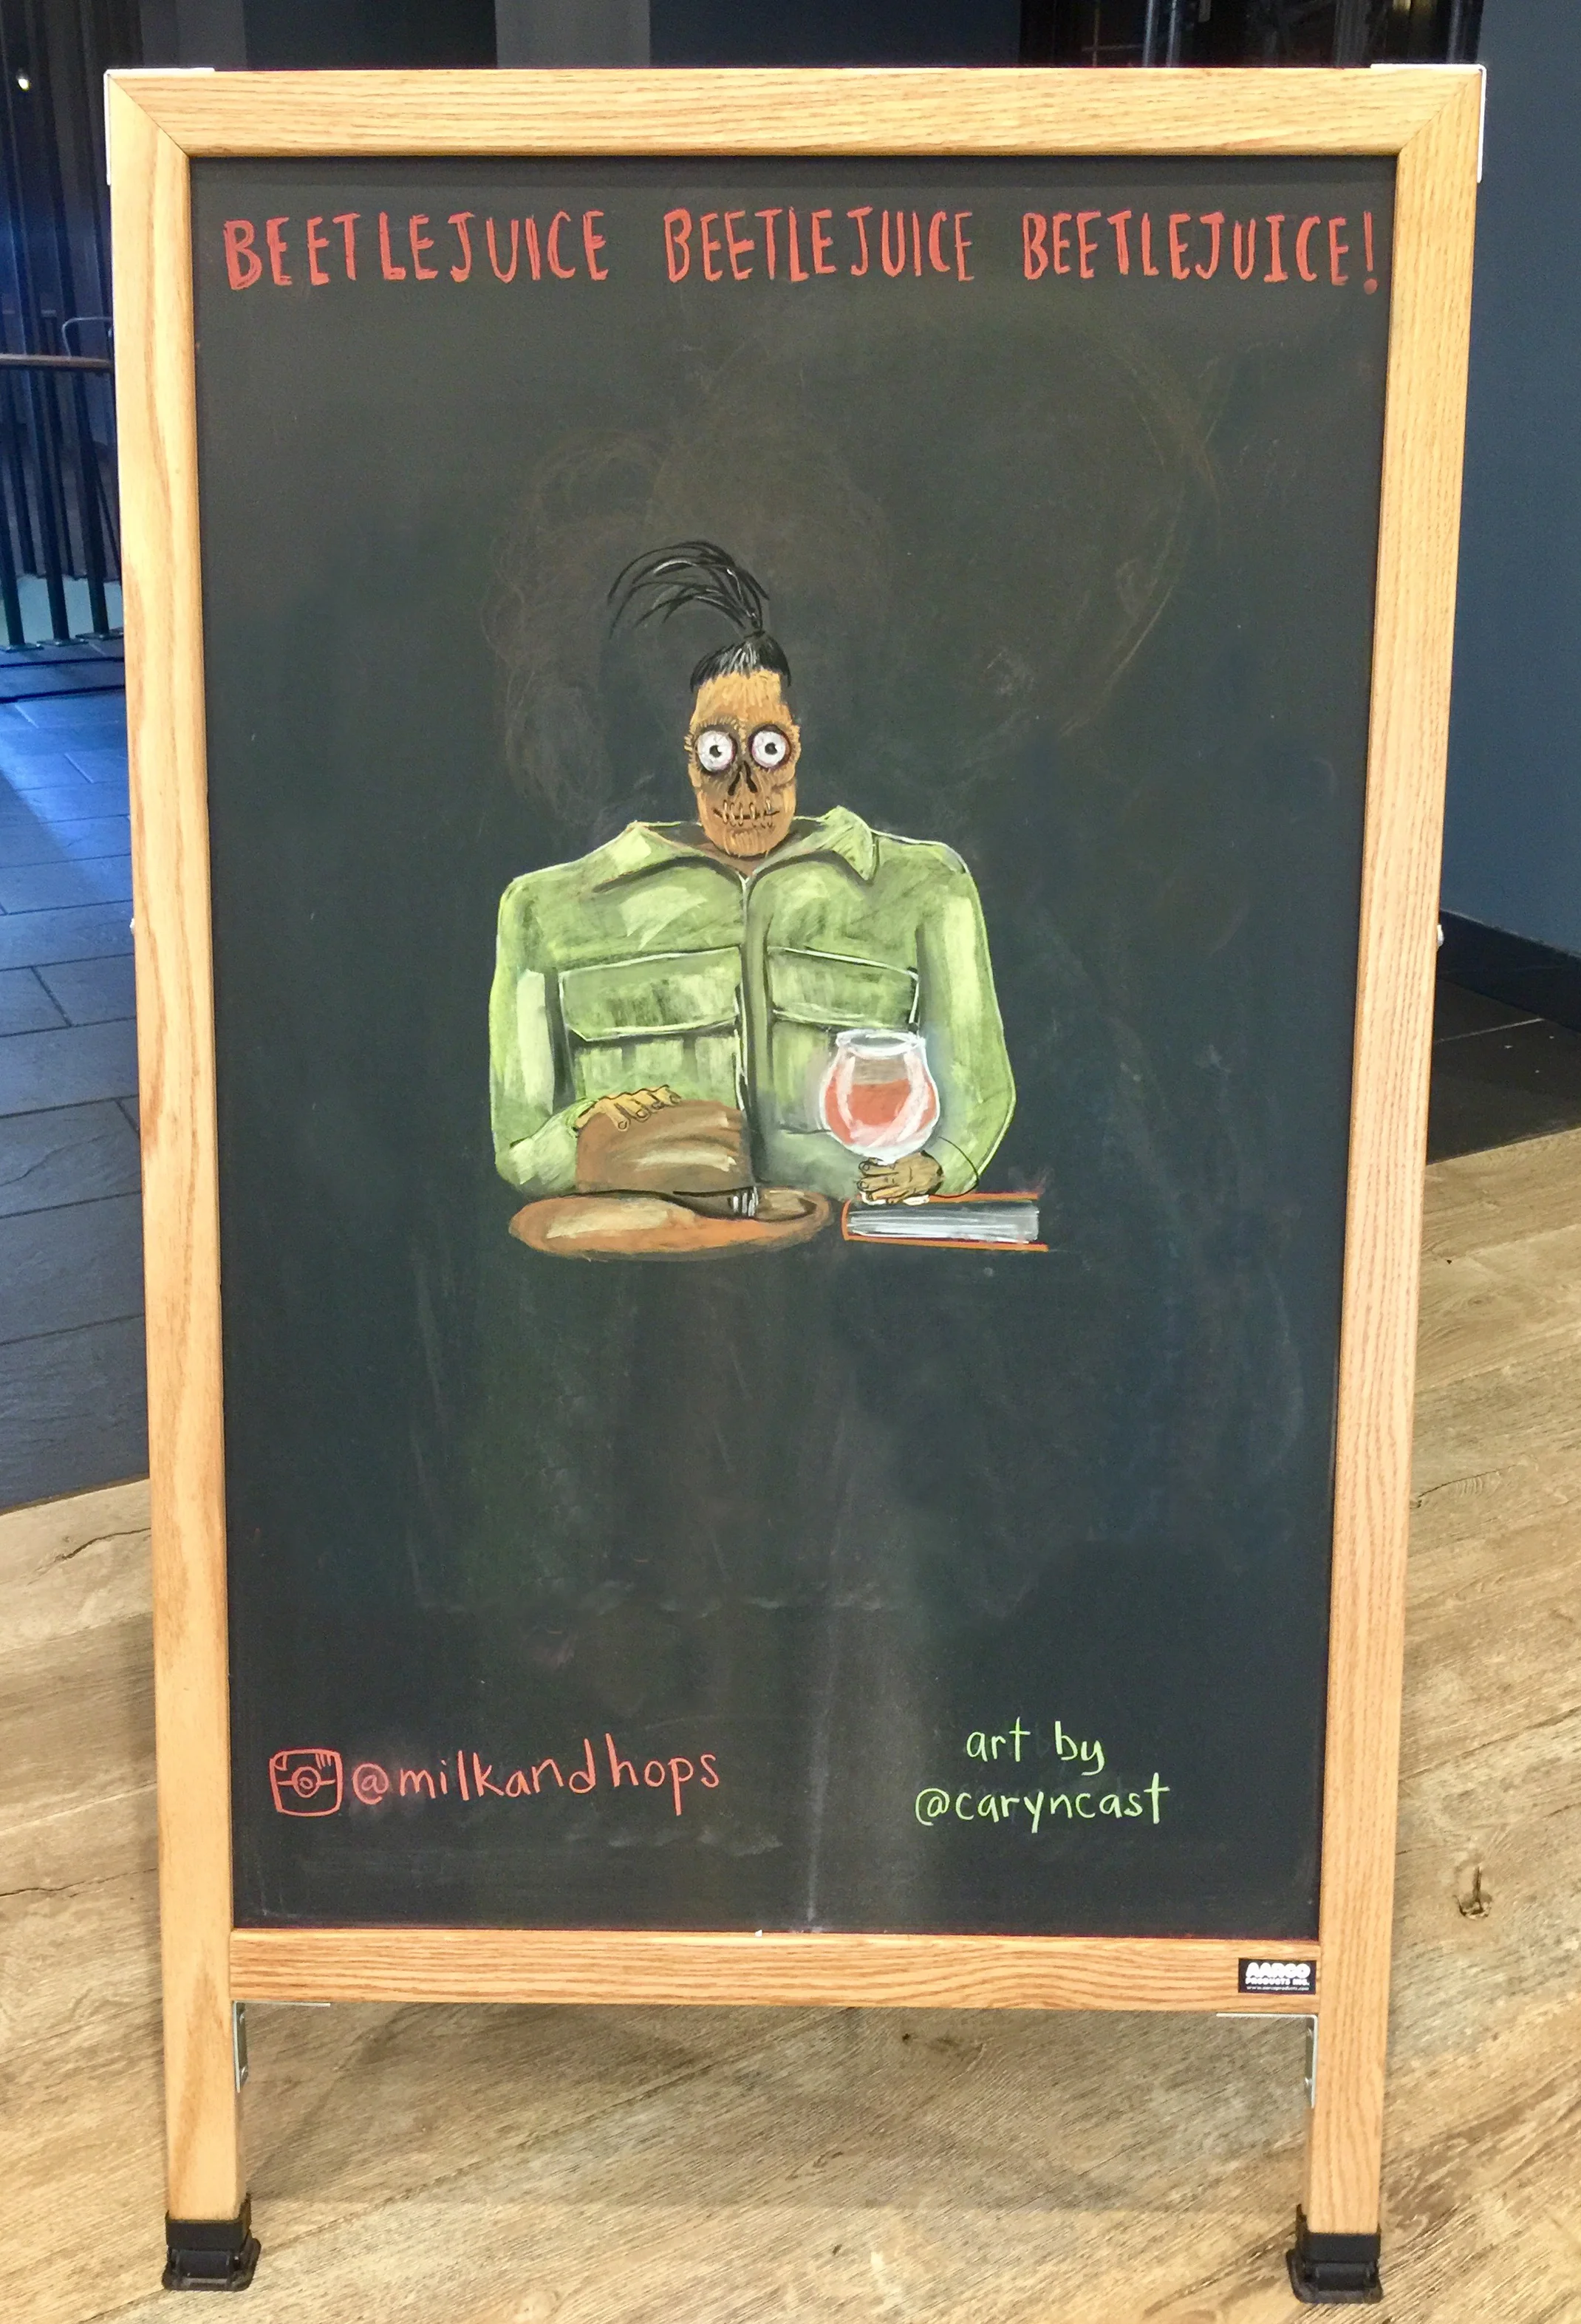 BEETLEJUICE BEETLEJUICE BEETLEJUICE!
@milkandhops
art by
@caryncast
AARCO
PRODUCTS INC.